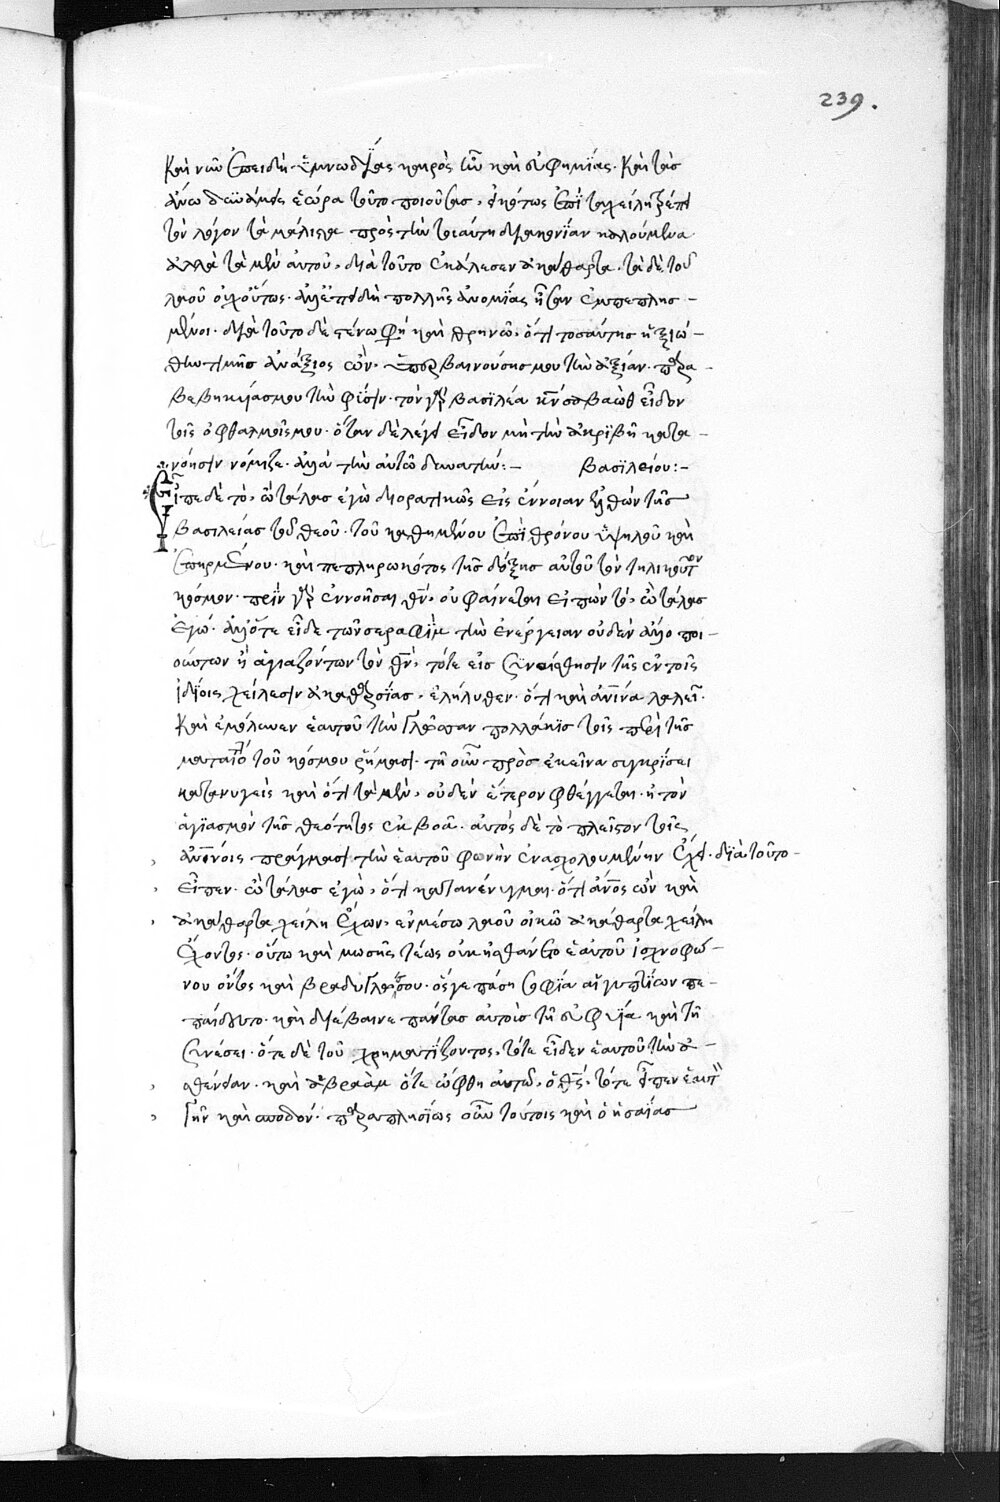 239.
Καὶ νῦν ἐπειδὴ ὑμνωδΐας καιρὸς ἦν καὶ εὐφημΐας. Καὶ τὰς
ἄνω δυνάμεις ἑώρα τοῦτο ποιούσας, εἰκότως ἐπῒ τὰ χείλη τρέπει
τὸν λόγον τὰ μάλιστα πρὸς τὴν τοιαύτην διακονΐαν καλούμενα
ἀλλὰ τὰ μὲν αὐτοῦ, διὰ τοῦτο ἐκάλεσεν ἀκάθαρτα. τὰ δὲ τοῦ
λαοῦ οὐχ οὕτως. ἀλλ' ἐπειδὴ πολλῆς ἀνομΐας ἦσαν ἐμπεπλησ-
μένοι. διὰ τοῦτο δὲ στένω φη καὶ θρηνῶ, ὅτι τοσαύτης ἠξιώ-
θην τιμῆς ἀνάξιος ὤν. ὑπερβαινούσης μου τὴν ἀξίαν. παρα-
βεβηκυίας μου τὴν φύσιν. τὸν γὰρ βασϊλέα κν σαβαὼθ εἶδον
τοῖς ὀφθαλμοῖς μου. ὅταν δὲ λέγει εἶδον μὴ τὴν ἀκριβῆ κατα-
νόησιν νόμιζε. ἀλλὰ τὴν αὐτῶ δυνατήν:- βασϊλείου:-
Εἶπε δὲ τὸ, ὦ τάλας ἐγὼ διορατικῶς εἰς ἔννοιαν ἐλθὼν τῆς
βασιλείας τοῦ θεοῦ. τοῦ καθημένου ἐπῒ θρόνου ὑψηλοῦ καὶ
ἐπηρμένου. καὶ πεπληρωκότος τῆς δόξης αὐτοῦ τὸν τηλικοῦτον
κόσμον. πρῒν γὰρ ἐννοῆσαι θν, οὐ φαίνεται εἰπὼν τὸ, ὦ τάλας
ἐγώ. ἀλλ' ὅτε εἶδε τῶν σεραφῒμ τὴν ἐνέργειαν οὐδὲν ἄλλο ποι-
ούντων ἢ ἁγιαζόντων τὸν θν, τότε εἰς συναίσθησιν τῆς ἐν τοῖς
ἰδΐοις χείλεσιν ἀκαθαρσΐας, ἐλήλυθεν. ὅτι καὶ ἀνινα λαλεῖ.
Καὶ ἐμόλυνεν ἑαυτοῦ τὴν γλῶσσαν πολλάκϊς τοῖς περὶ τῆς
ματαιότητος τοῦ κόσμου ῥήμασι. τῆ οὖν πρὸς ἐκεῖνα συγκρίσει
κατανυγεὶς καὶ ὅτι τὰ μὲν, οὐδὲν ἕτερον φθέγγεται. ἢ τὸν
ἁγϊασμὸν τῆς θεότητος ἐκβοᾶ. αὐτὸς δὲ τὸ πλεῖστον τοῖς
ἀνίνοις πράγμασι τὴν ἑαυτοῦ φωνὴν ἐνασχολουμένην ἔχει. διὰ τοῦτο-
εἶπεν. ὦ τάλας ἐγὼ, ὅτι κατανένυγμαι. ὅτι ἄνος ὢν καὶ
ἀκάθαρτα χείλη ἔχων, ἐν μέσω λαοῦ οἰκῶ ἀκάθαρτα χείλη
ἔχοντος. οὕτω καὶ μωσῆς τέως οὐκ ἠσθάνετο ἑαυτοῦ ἰσχνοφώ-
νου ὄντος καὶ βραδυγλώσσου. ὅς γε πάση σοφία αἰγυπτίων πε-
παίδευτο. καὶ διέβαινε πάντας αὐτοὺς τῆ εὐφυΐα καὶ τῆ
συνέσει. ὅτε δὲ τοῦ χρηματΐζοντος, τότε εἶδεν ἑαυτοῦ τὴν ἀ-
σθένειαν. καὶ ἀβραὰμ ὅτε ὤφθη αὐτῶ, ὁ θς, τότε εἶπεν ἑαυτὸν
γῆν καὶ σποδόν. παραπλησΐως οὖν τούτοις καὶ ὁ ἡσαΐας